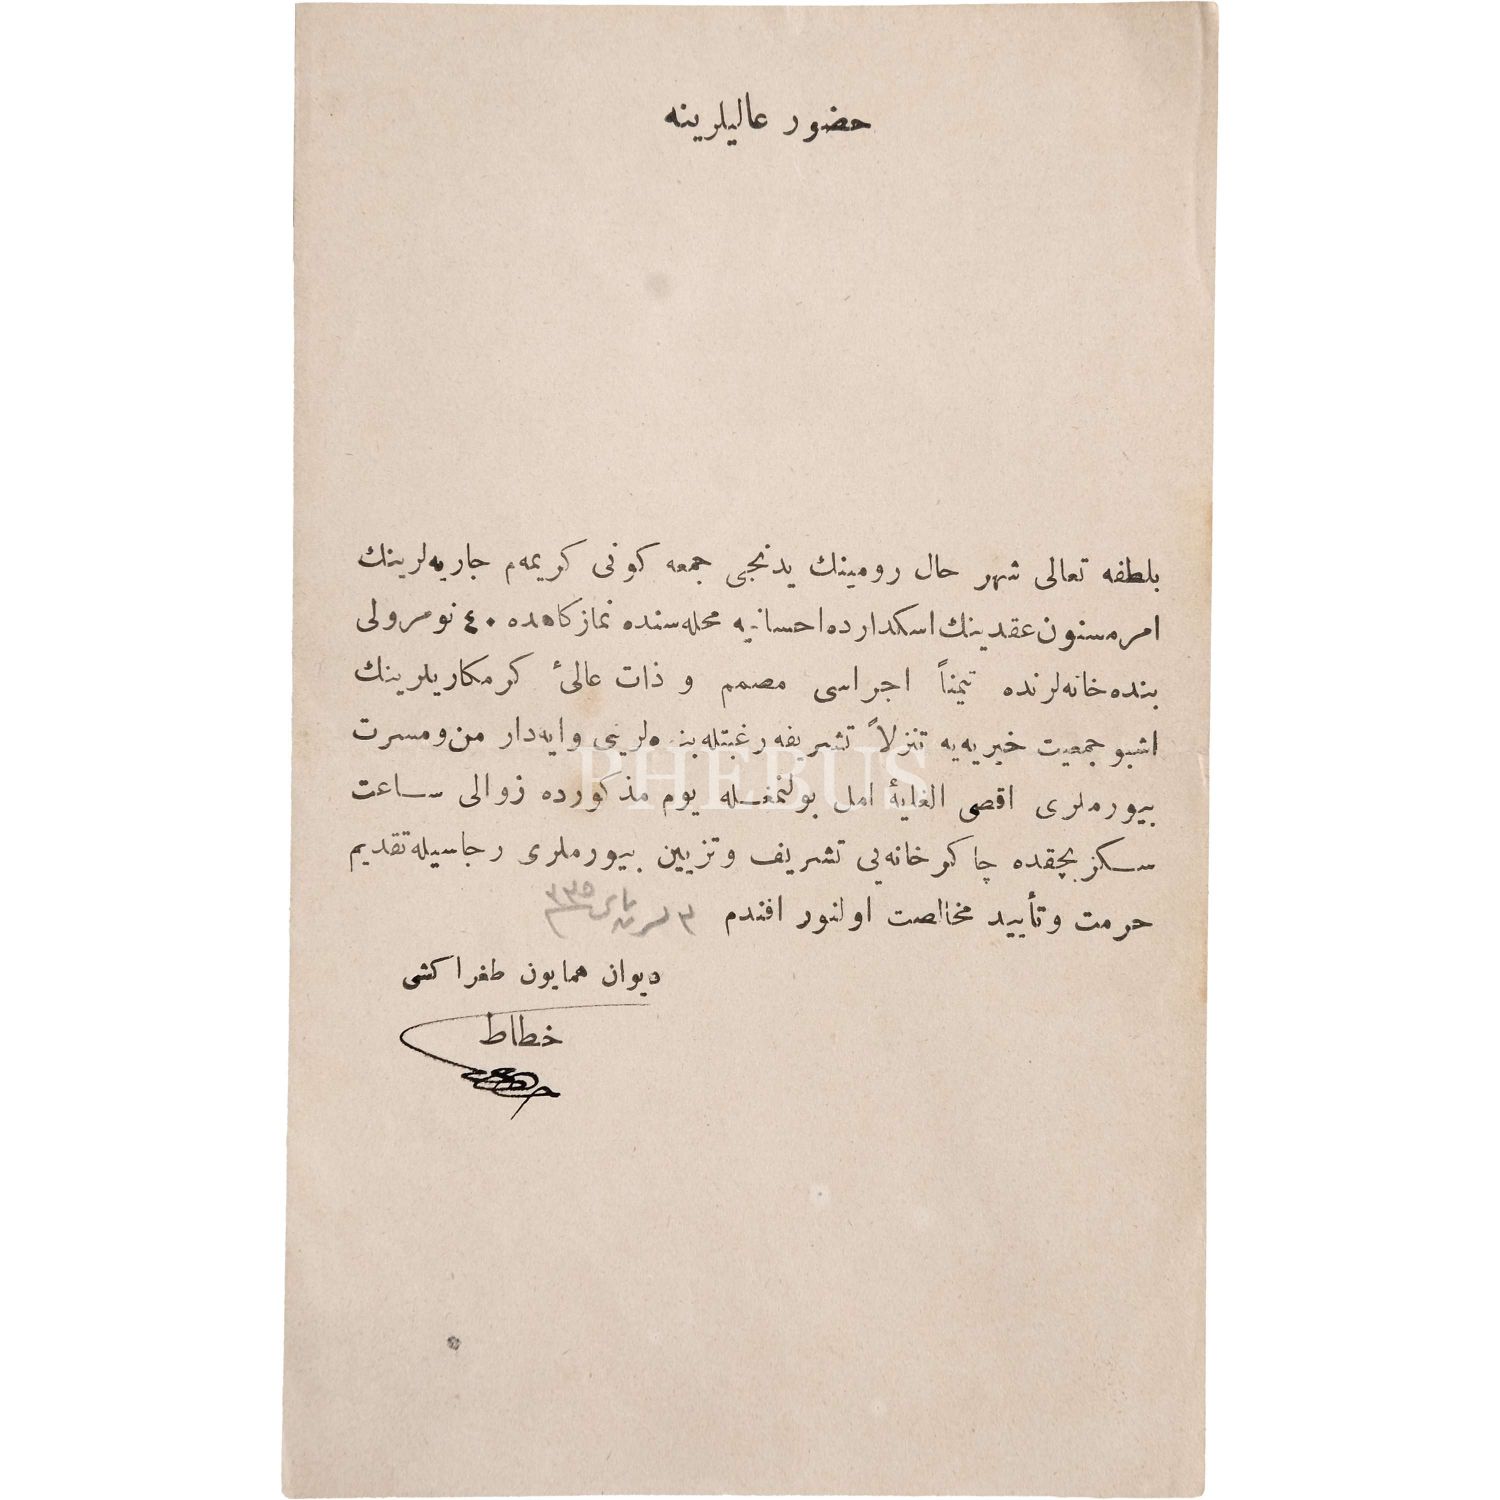 حضور عالیلرینه
بلطفه تعالی شهر حال رومینك یدنجی جمعه کونی کریمه‌م جاریه‌لرینك
امر مسنون عقدینك اسکدارده احسانیه محله‌سنده نمازکاهده ٤٠ نومرولی
بنده‌خانه‌لرنده تیمناً اجراسی مصمم و ذات عالئ کرمکاریلرینك
اشبو جمعیت خیریه‌یه تنزلاً تشریفه رغبتله بنده‌لرینی وایه‌دار من و مسرت
بیورملری اقصی الغایهٔ امل بولنمغله یوم مذکورده زوالی ساعت
سکز بچقده چاکرخانه‌یی تشریف و تزیین بیورملری رجاسیله تقدیم
حرمت و تأیید مخالصت اولنور افندم ٣ مایس ٣٣٥
دیوان همایون طغراکشی
خطاط
PHEBUS